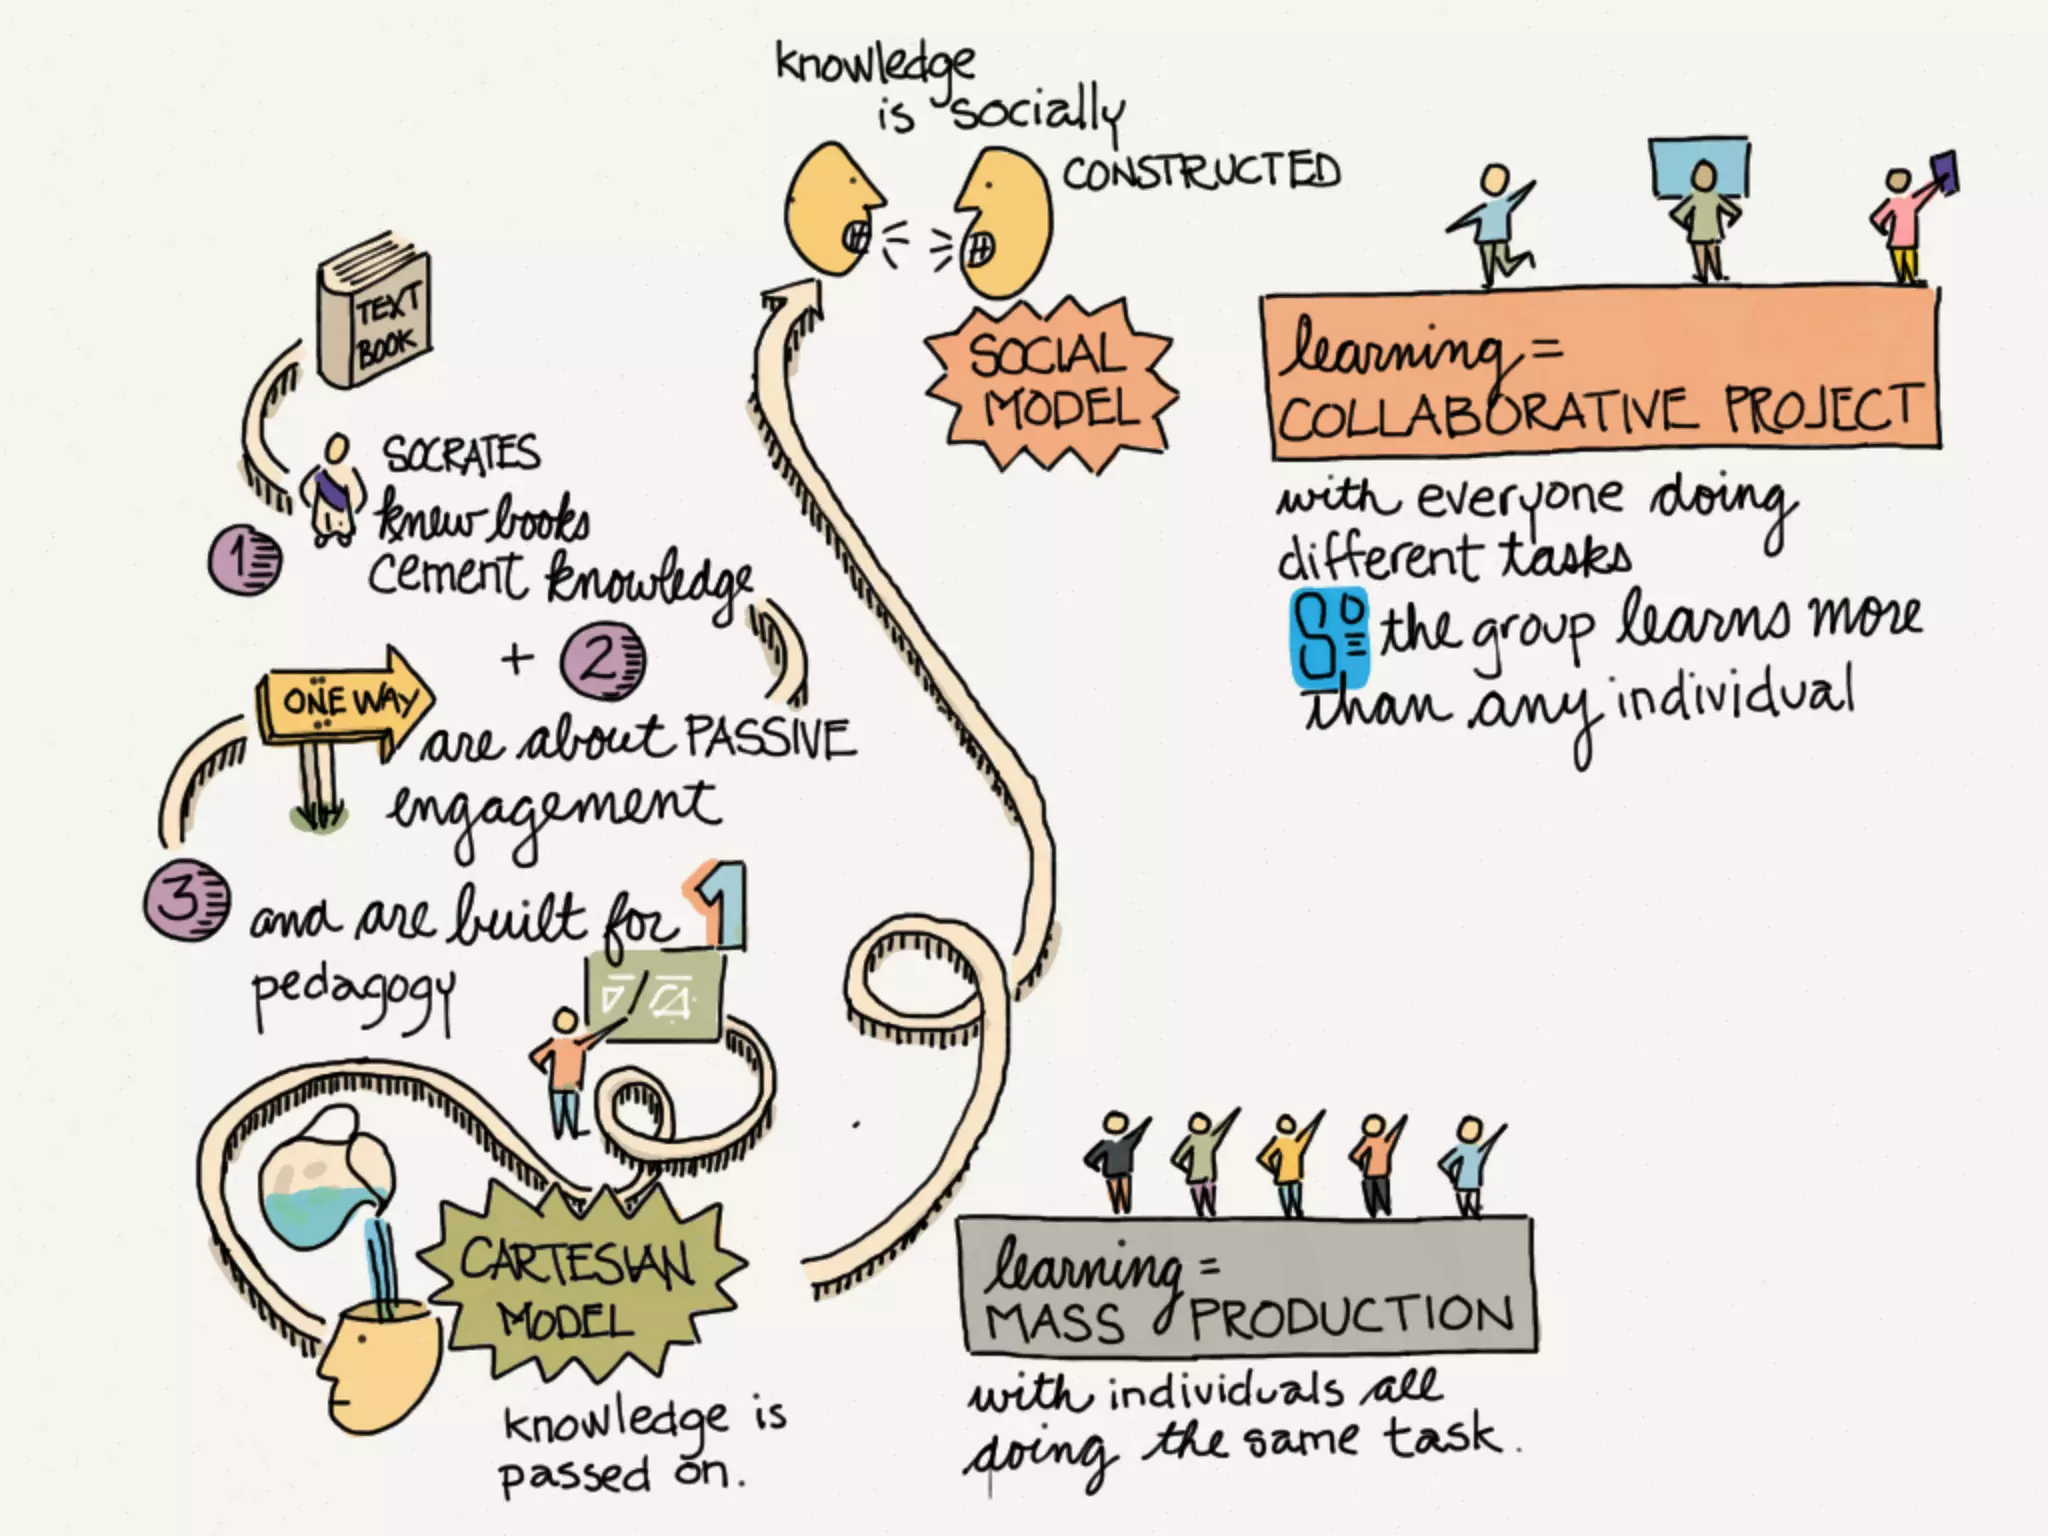 knowledge
is socially
CONSTRUCTED
SOCIAL
MODEL
learning =
COLLABORATIVE PROJECT
with everyone doing
different tasks
So the group learns more
than any individual
TEXT
BOOK
1
SOCRATES
knew books
cement knowledge
+ 2
ONE WAY
are about PASSIVE
engagement
3
and are built for 1
pedagogy
CARTESIAN
MODEL
knowledge is
passed on.
learning =
MASS PRODUCTION
with individuals all
doing the same task.